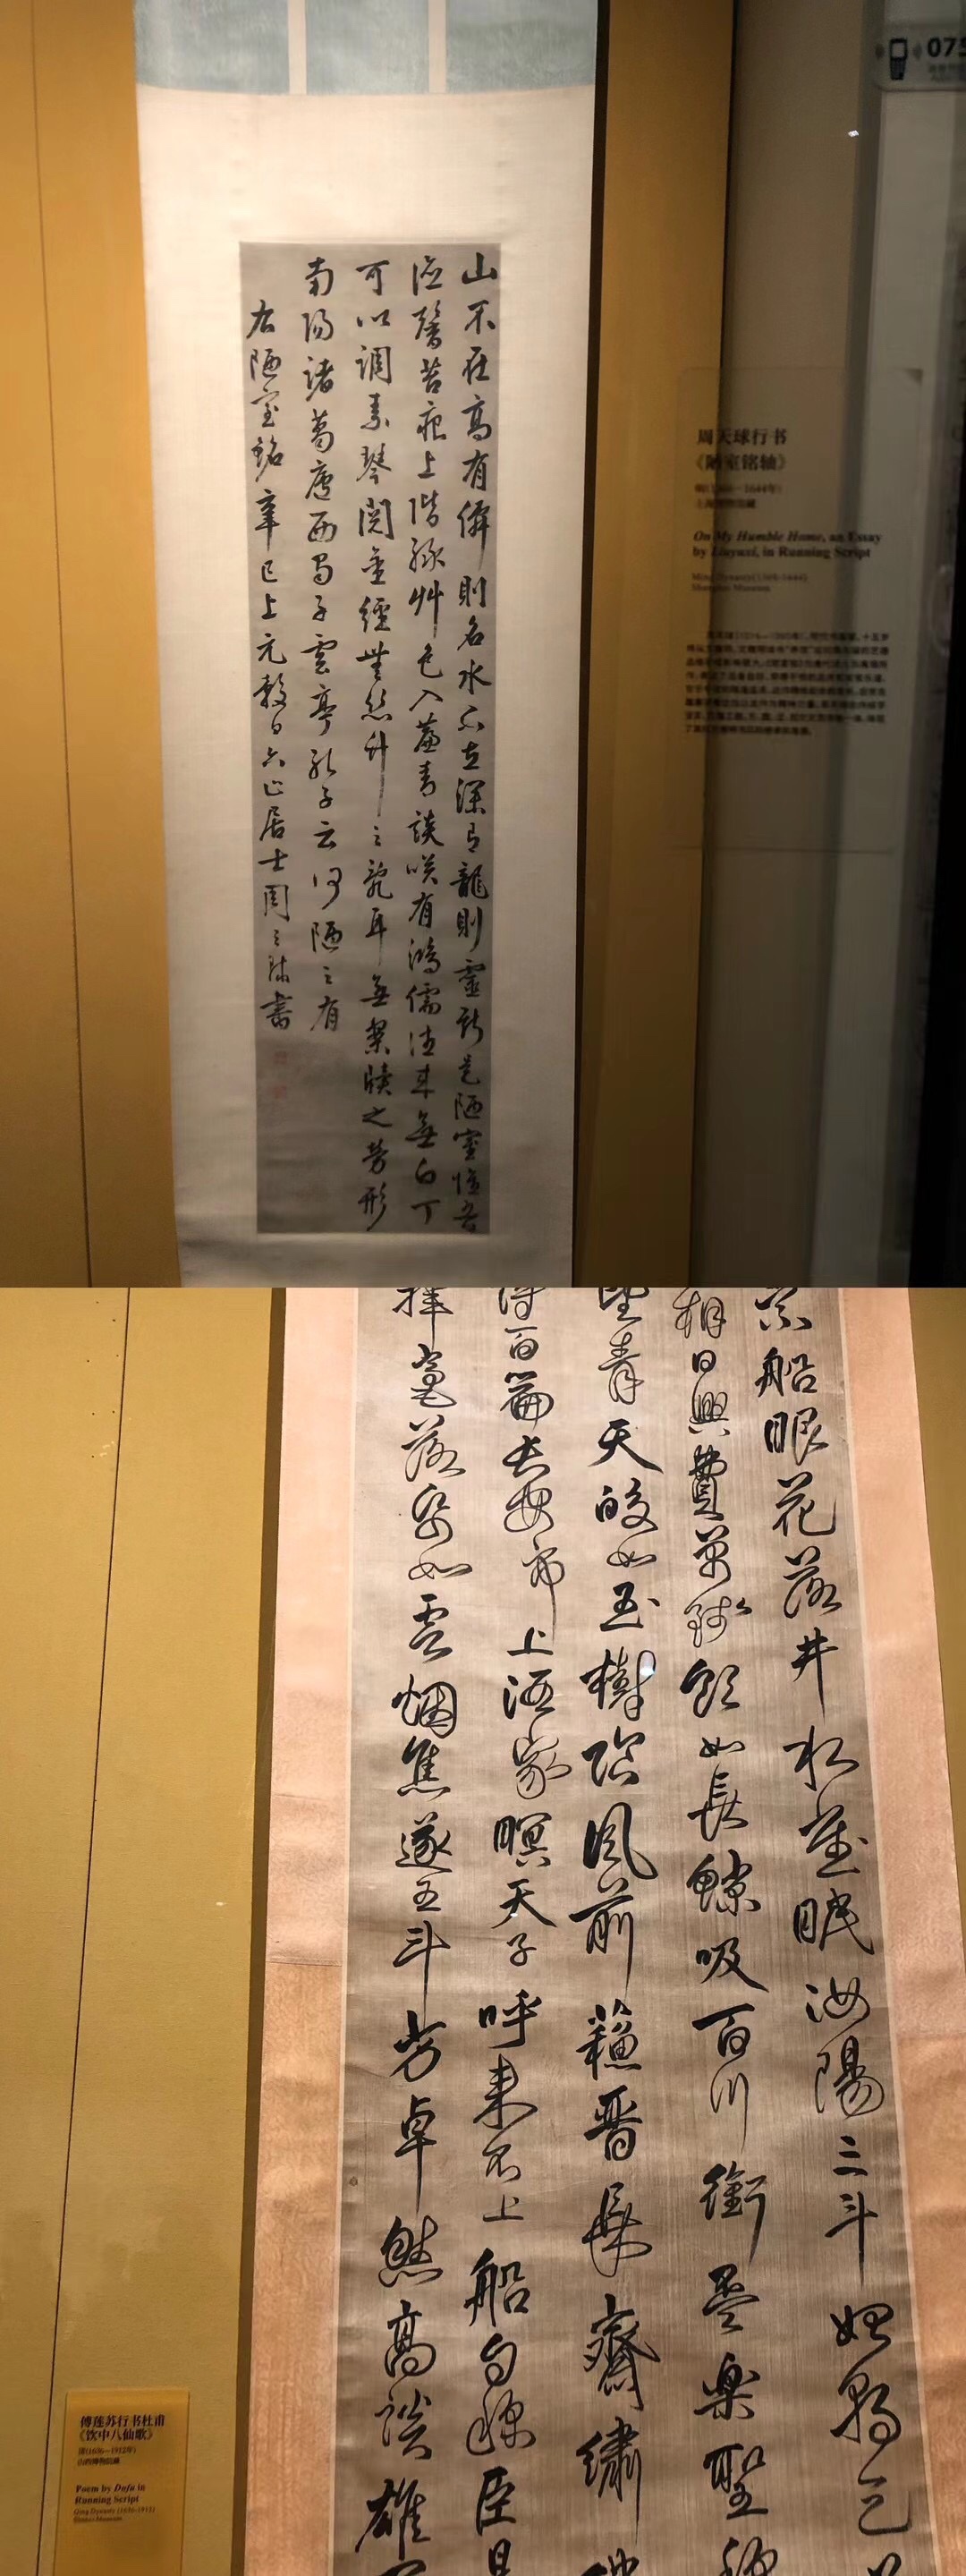 山不在高有僊則名水不在深有龍則靈斯是陋室惟吾
德馨苔痕上階綠艸色入簾青談咲有鴻儒往來無白丁
可以調素琴閱金經無絲竹之亂耳無案牘之勞形
南陽諸葛廬西蜀子雲亭孔子云何陋之有
右陋室銘辛巳上元穀日六止居士周天球書
075
周天球行书
《陋室铭轴》
明(1368—1644年)
上海博物馆藏
On My Humble Home, an Essay
by Liuyuxi, in Running Script
Ming Dynasty(1368-1644)
Shanghai Museum
船眼花落井水底眠汝陽三斗始朝天
相日興費萬錢飲如長鯨吸百川銜杯樂聖稱
望青天皎如玉樹臨風前蘇晉長齋繡佛
詩百篇長安市上酒家眠天子呼來不上船自稱臣是
揮毫落紙如雲烟焦遂五斗方卓然高談雄
傅莲苏行书杜甫
《饮中八仙歌》
清(1636—1912年)
山西博物院藏
Poem by Dufu in
Running Script
Qing Dynasty (1636-1911)
Shanxi Museum